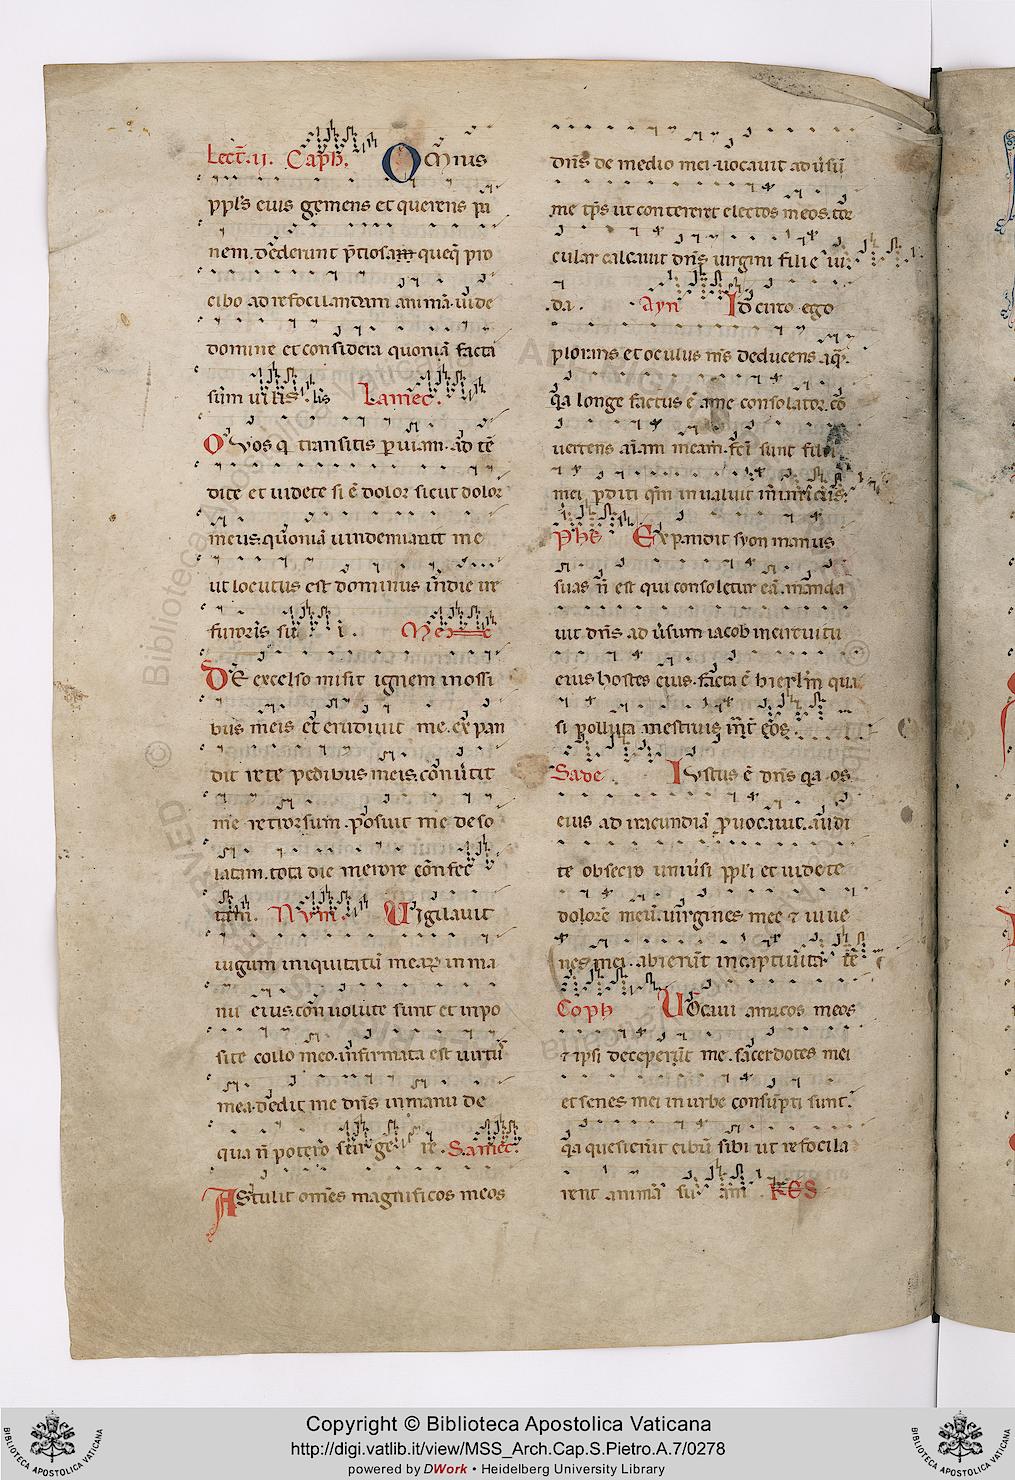 Lect̄. ii. Caph. Om̄nis
ppl's eius gemens et querens pa
nem. dederunt p̄tiosa queq; pro
cibo ad refocilandam animā. uide
domine et considera quoniā facta
sum uilis. lis Lamec.
O Vos q transitis p uiam. ad tē
dite et uidete si ē dolor sicut dolor
meus. quoniā uindemiauit me
ut locutus est dominus in die ire
furoris sui i. Mec
DE excelso misit ignem in ossi
bus meis et erudiuit me. expan
dit rete pedibus meis. conuertit
me retrorsum. posuit me deso
latam. tota die merore confec
tam. Nym. Uigilauit
iugum iniquitatū mearꝝ in ma
nu eius. conuolute sunt et inpo
site collo meo. infirmata est uirtus
mea. dedit me dn̄s in manu de
qua n̄ potero surge re. Samec.
Astulit omēs magnificos meos
dn̄s de medio mei. uocauit aduersū
me tp̄s ut contereret electos meos. tor
cular calcauit dn̄s uirgini filie iu
da. Ayn Idcirco ego
plorans et oculus m̄s deducens aq̄.
q̄a longe factus ē a me consolator. cō
uertens aīam meam. fc̄i sunt filii
mei pditi qm̄ inualuit inimicus.
Phe Expandit syon manus
suas n̄ est qui consoletur eā. manda
uit dn̄s aduersum iacob in circuitu
eius hostes eius. facta ē hierl'm qua
si polluta menstruis int̄ eos.
Sade Iustus ē dn̄s q̄a os
eius ad iracundiā prouocauit. audi
te obsecro uniuersi ppl'i et uidete
dolorē meū. uirgines mee ⁊ iuue
nes mei. abierunt in captiuita tē
Coph Uocaui amicos meos
⁊ ipsi deceperūt me. sacerdotes mei
et senes mei in urbe consūpti sunt.
q̄a quesierūt cibū sibi ut refocila
rent animā suam RES
Copyright © Biblioteca Apostolica Vaticana
http://digi.vatlib.it/view/MSS_Arch.Cap.S.Pietro.A.7/0278
powered by DWork • Heidelberg University Library
BIBLIOTECA APOSTOLICA VATICANA
BIBLIOTECA APOSTOLICA VATICANA